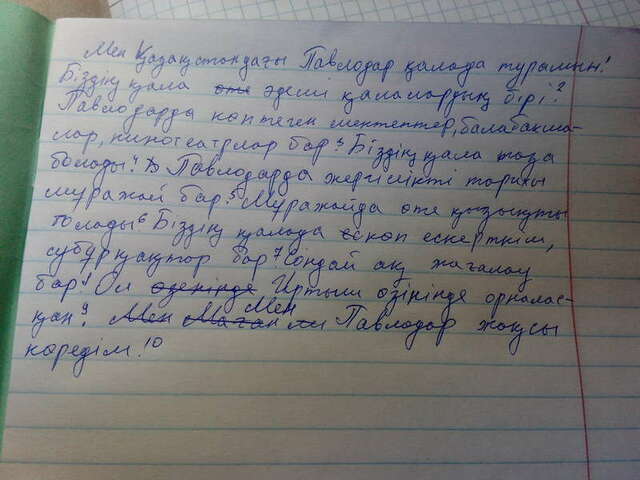 Мен Қазақстондағы Павлодар қалада турамын!
Біздің қала оте әдемі қалалардың бірі.²
Павлодарда көптеген мектептер, балабақша-
лар, кинотеатрлар бар.³ Біздің қала таза
болады.⁴ Павлодарда жергілікті тарихы
муражай бар.⁵ Муражайда оте қызықты
болады⁶ Біздің қалада көп ескерткіш,
субурқақтар бар.⁷ Сондай ақ жағалау
бар.⁸ Ол өзенінде Иртыш өзінінде орналас-
қан.⁹ Мен Маған Мен Павлодар жақсы
көредім.¹⁰